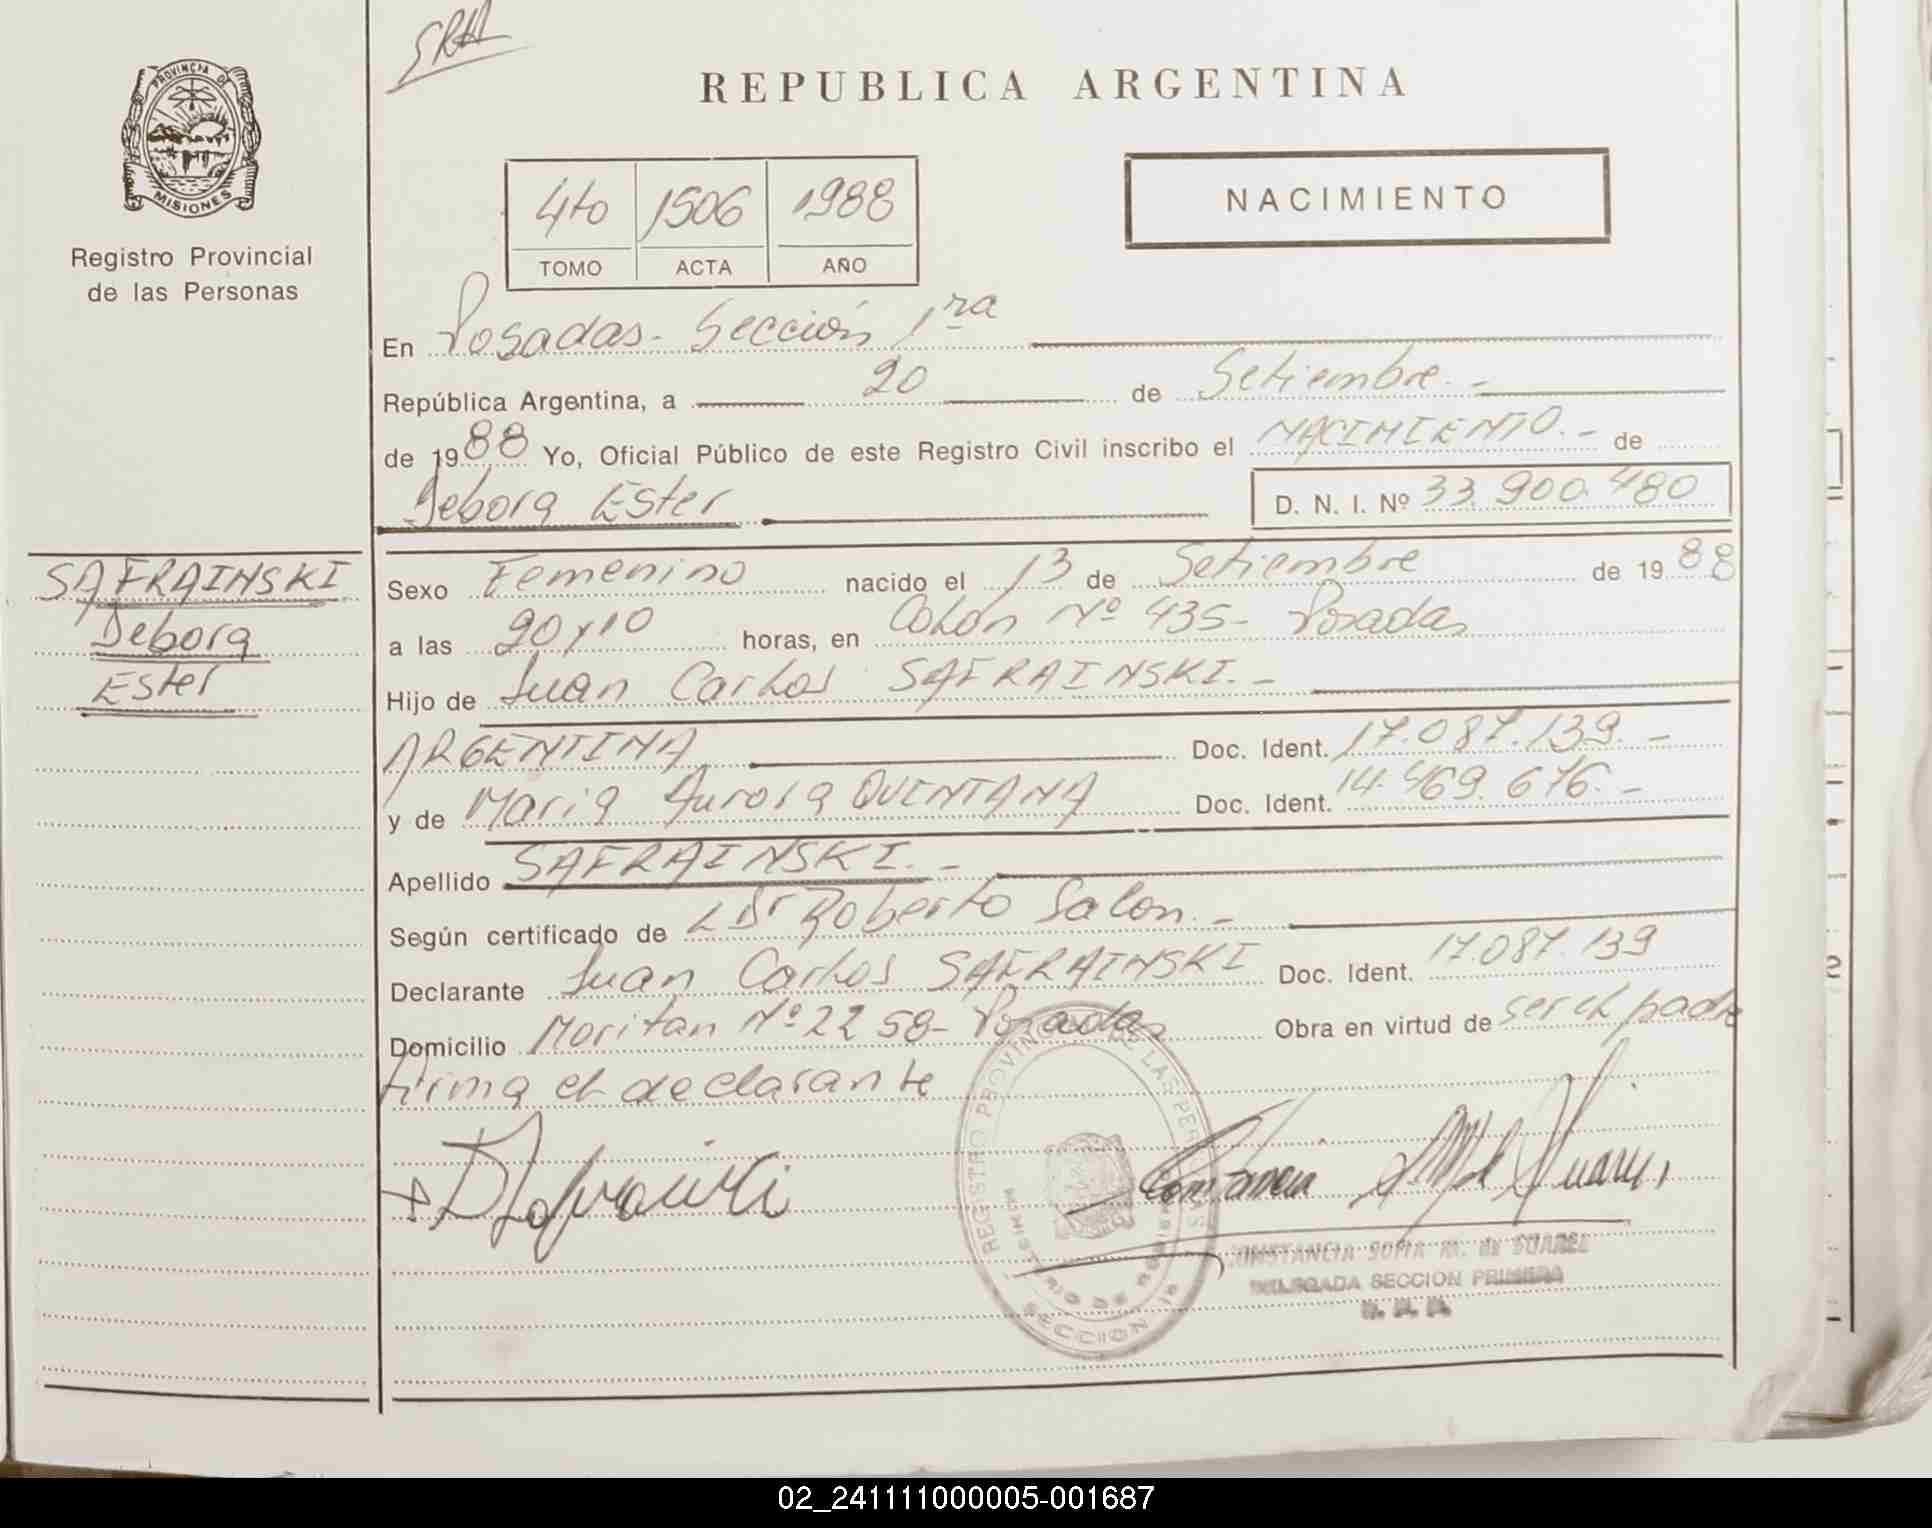 SRA
PROVINCIA DE
MISIONES
Registro Provincial
de las Personas
REPUBLICA ARGENTINA
4to 1506 1988
TOMO ACTA AÑO
NACIMIENTO
En Posadas. Sección 1ra
República Argentina, a 20 de Setiembre.-
de 1988 Yo, Oficial Público de este Registro Civil inscribo el NACIMIENTO.- de
Debora Ester D. N. I. Nº 33.900.480
SAFRAINSKI
Debora
Ester
Sexo Femenino nacido el 13 de Setiembre de 1988
a las 20 y 10 horas, en Colón Nº 435- Posadas
Hijo de Juan Carlos SAFRAINSKI.-
ARGENTINA Doc. Ident. 17.087.139.-
y de Maria Aurora QUINTANA Doc. Ident. 14.469.676.-
Apellido SAFRAINSKI.-
Según certificado de Dr Roberto Salon.-
Declarante Juan Carlos SAFRAINSKI Doc. Ident. 17.087.139
Domicilio Moritan Nº 2258- Posadas Obra en virtud de ser el padre
firma el declarante
REGISTRO PROVINCIAL DE LAS PERSONAS
MINISTERIO DE GOBIERNO
SECCION 1ª
CONSTANCIA SOFIA M. de SUAREZ
DELEGADA SECCION PRIMERA
02_241111000005-001687